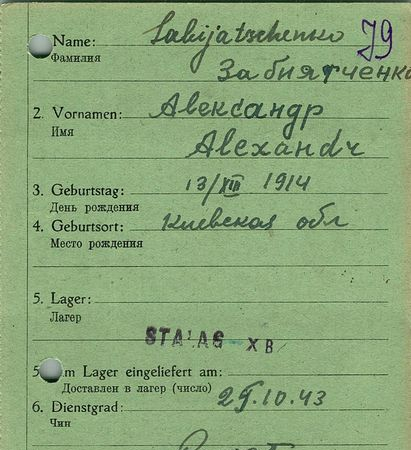 Name: Sabijatschenko 79
Фамилия Забиятченко
2. Vornamen: Александр
Имя
Alexandr
3. Geburtstag: 13/XII 1914
День рождения
4. Geburtsort: Киевская обл
Место рождения
5. Lager:
Лагер
STALAG XB
5 m Lager eingeliefert am:
Доставлен в лагер (число) 25.10.43
6. Dienstgrad:
Чин